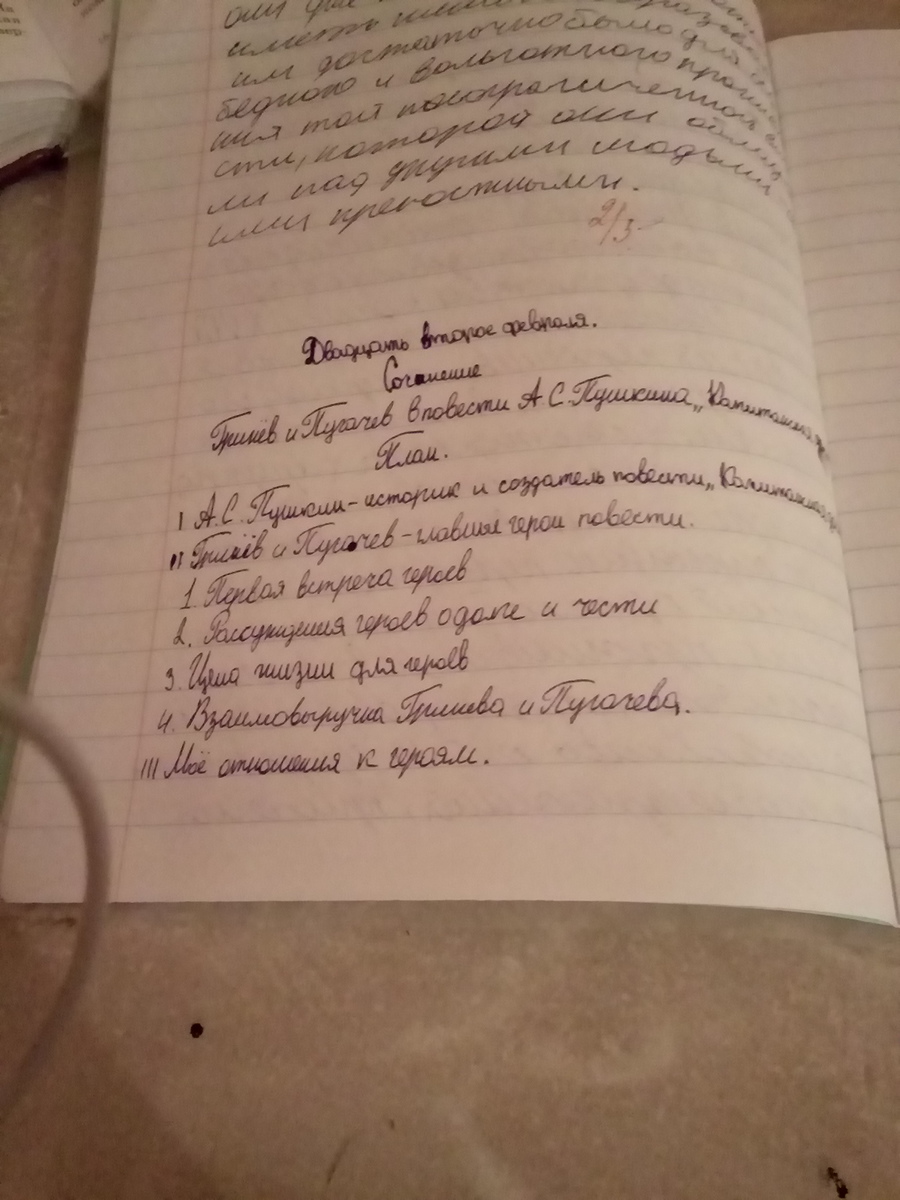 им достаточно было для
бедного и вольготного
ния той неограниченности
сти, которой они
ли над другими людьми
ими крепостными.
2/3
Двадцать второе февраля.
Сочинение
Гринёв и Пугачев в повести А.С.Пушкина „Капитанская
План.
I А.С. Пушкин-историк и создатель повести „Капитанская
II Гринёв и Пугачев-главныя герои повести.
1. Первая встреча героев
2. Рассуждения героев о долге и чести
3. Цена жизни для героев
4. Взаимовыручка Гринева и Пугачева.
III Моё отношения к героям.